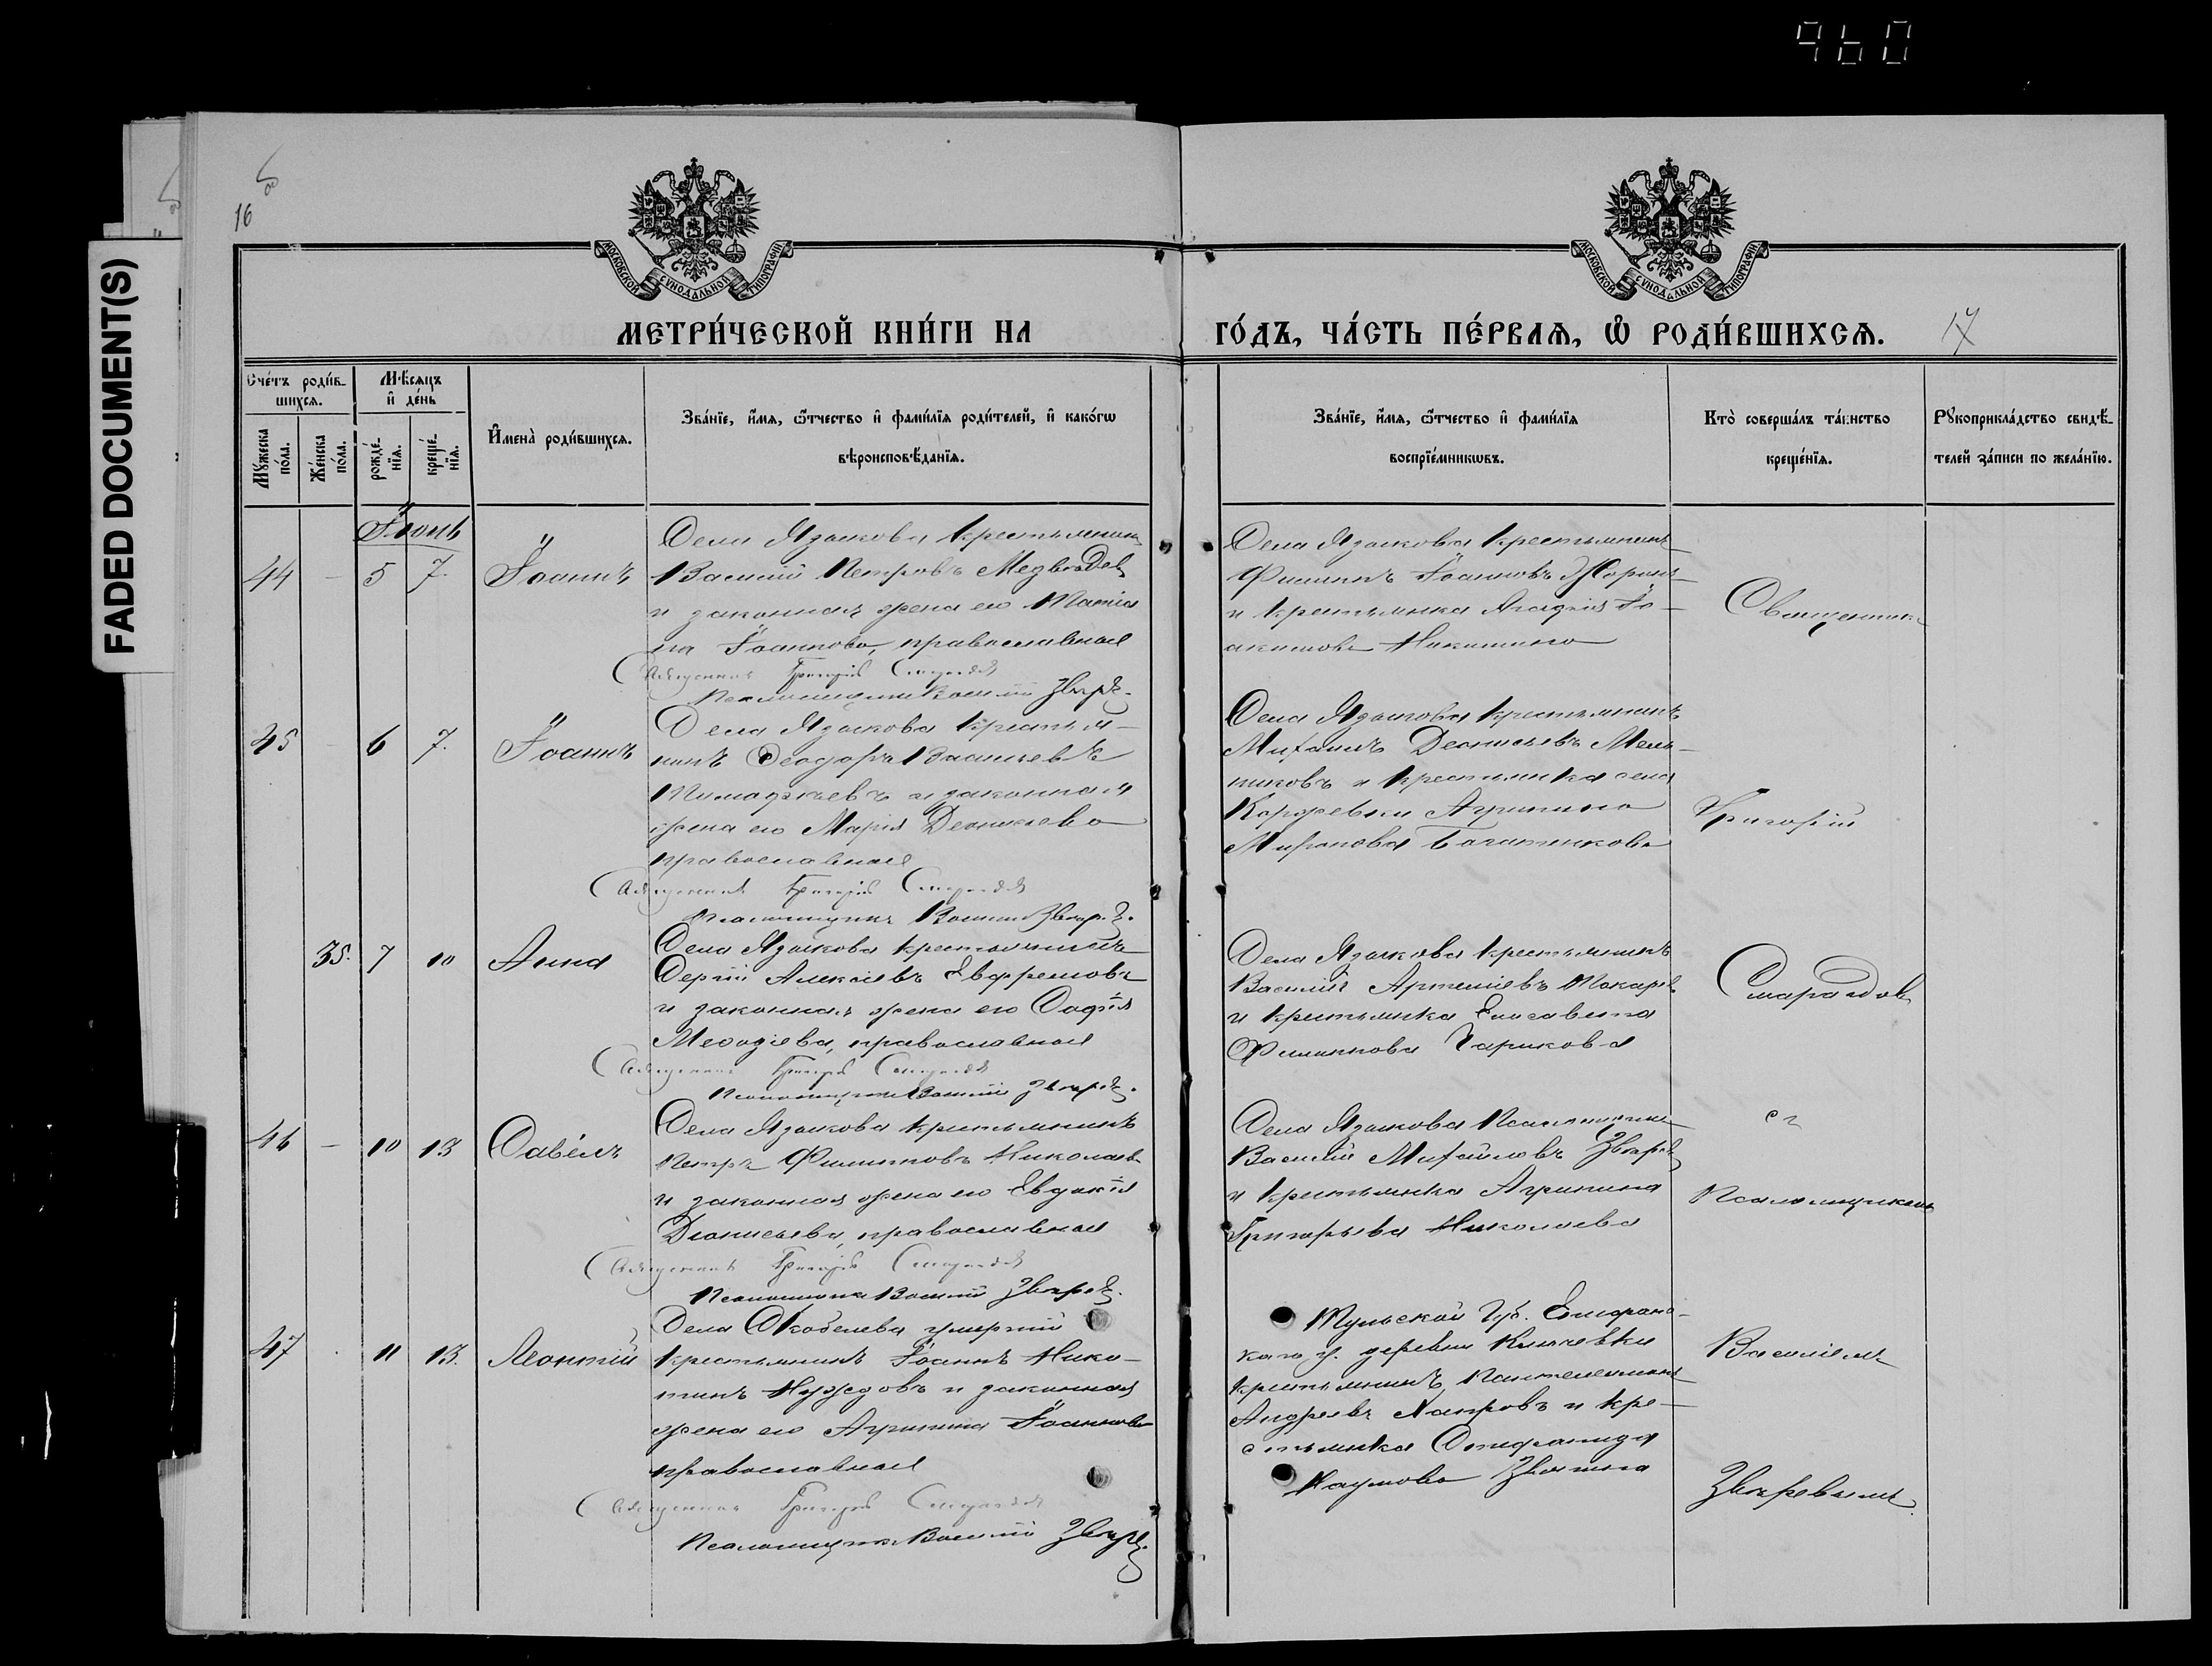 960
FADED DOCUMENT(S)
16
МОСКОВСКОЙ СѴНОДАЛЬНОЙ ТИПОГРАФІИ
МОСКОВСКОЙ СѴНОДАЛЬНОЙ ТИПОГРАФІИ
МЕТРИ́ЧЕСКОЙ КНИ́ГИ НА
ГО́ДЪ, ЧА́СТЬ ПЕ́РВАѦ, Ѡ҆ РОДИ́ВШИХСѦ.
17
Счéтъ роди́в-
шихсѧ.
Мѣ́сѧцъ
и҆ дéнь
Мꙋ́жеска
по́ла.
Же́нска
по́ла.
рождé-
нїѧ.
крещé-
нїѧ.
И҆мена̀ роди́вшихсѧ.
Зва́нїе, и҆́мѧ, ѻ҆́тчество и҆ фами́лїѧ роди́телей, и҆ како́гѡ
вѣроисповѣ́данїѧ.
Зва́нїе, и҆́мѧ, ѻ҆́тчество и҆ фами́лїѧ
воспрїéмникѡвъ.
Кто̀ соверша́лъ та́инство
крещéнїѧ.
Рꙋкоприкла́дство свидѣ́-
телей за́писи по жела́нїю.
Іюнь
44 – 5 7. Іоаннъ
Села Языкова крестьянинъ
Василій Петровъ Медведев
и законная жена его
на Іоаннова, православные
Священникъ Григорій Смарагдов
Псаломщикъ Василій Звѣрев.
Села Языкова крестьянинъ
Филиппъ Іоанновъ
и крестьянка Іо-
акимова Никишина
Священник
45 6 7. Іоаннъ
Села Языкова крестья-
нинъ Ѳеодоръ Васильевъ
Тимофеевъ и законная
жена его Марія Деонисьева
православные
Священникъ Григорій Смарагдов
Псаломщикъ Василій Звѣрев.
Села Языкова крестьянинъ
Михаилъ Деонисьевъ Мель-
никовъ и крестьянка села
Агрипина
Миронова
Григорій
35. 7 10 Анна
Села Языкова крестьянинъ
Сергій Алексіевъ Евфремовъ
и законная жена его Софія
Меѳодіева, православные
Священникъ Григорій Смарагдов
Псаломщикъ Василій Звѣрев.
Села Языкова крестьянинъ
Василій Артеміевъ Токарев
и крестьянка Елисавета
Филиппова Чарикова
Смарагдов
46 – 10 13 Савелъ
Села Языкова крестьянинъ
Петръ Филипповъ Николаев
и законная жена его Евдокія
Діонисьева, православные
Священникъ Григорій Смарагдов
Псаломщикъ Василій Звѣрев.
Села Языкова Псаломщикъ
Василій Михайловъ Звѣрев
и крестьянка Агрипина
Григорьева Николаева
съ
Псаломщикомъ
47 11 13. Леонтій
Села Скобелева умершій
крестьянинъ Іоаннъ Ники-
тинъ Нуждовъ и законная
жена его Агрипина Іоаннова
православные
Священникъ Григорій Смарагдов
Псаломщикъ Василій Звѣрев.
Тульской Губ. Епифанс-
каго у. деревни
крестьянинъ Пантелеимонъ
Андреевъ и кре-
стьянка
Наумова
Василіемъ
Звѣревымъ.